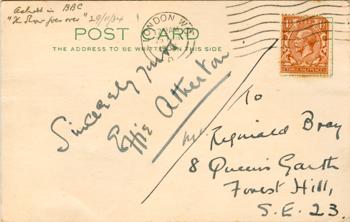 Acted in BBC
"The Show goes over" 29/11/34
LONDON W.
POST CARD
THE ADDRESS TO BE WRITTEN ON THIS SIDE
Sincerely yours
Effie Atherton
To
Mr Reginald Bray
8 Queens Garth
Forest Hill,
S.E. 23.